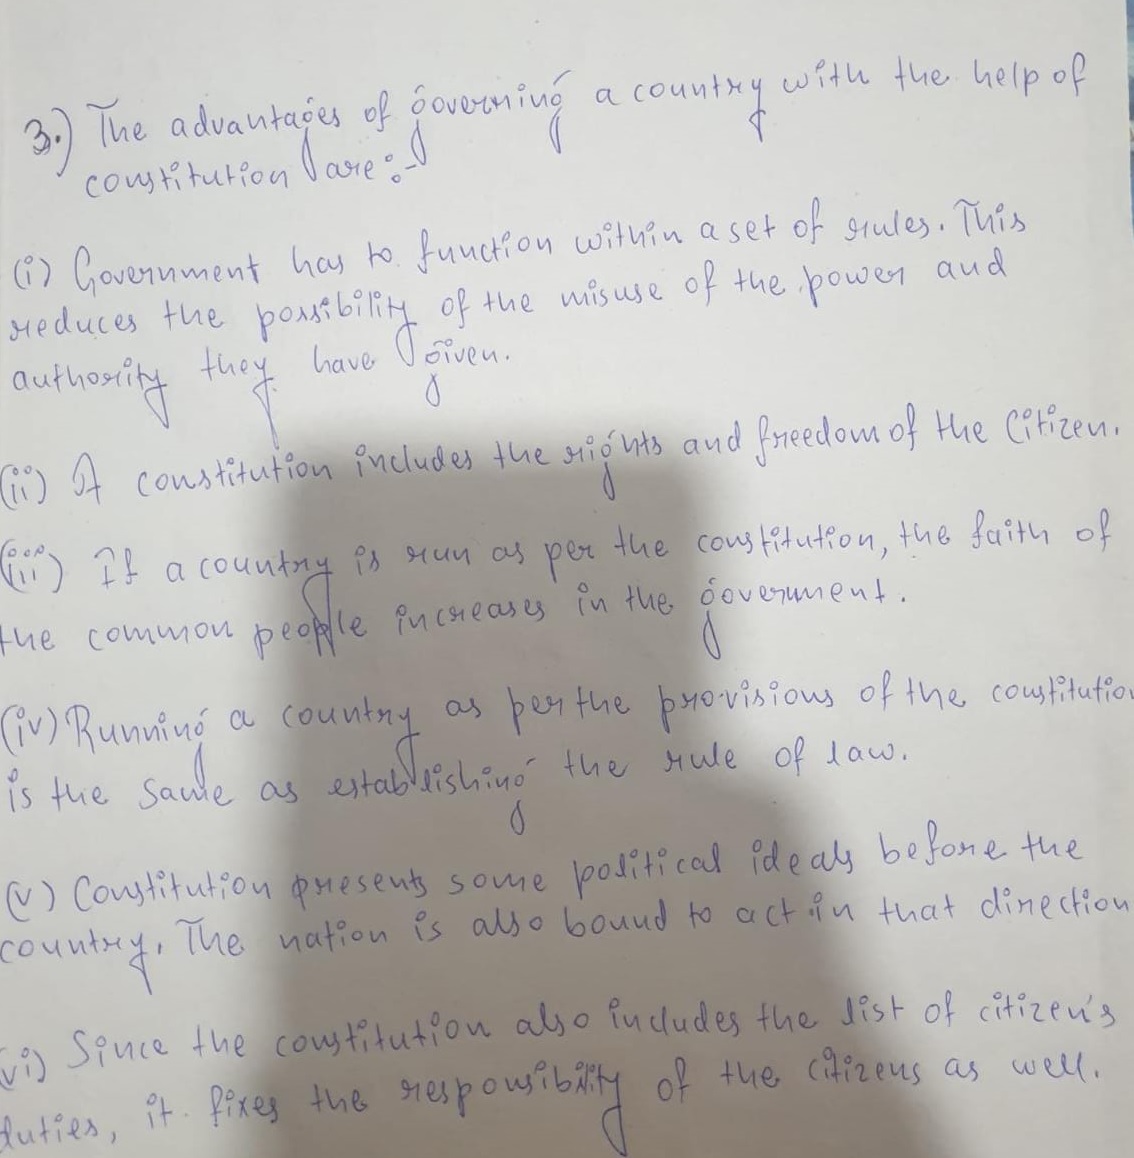 3.) The advantages of governing a country with the help of
constitution are:-
(i) Government has to function within a set of rules. This
reduces the possibility of the misuse of the power and
authority they have given.
(ii) A constitution includes the rights and freedom of the Citizen.
(iii) If a country is run as per the constitution, the faith of
the common people increases in the goverment.
(iv) Running a country as per the provisions of the constitution
is the same as establishing the rule of law.
(v) Constitution presents some political ideals before the
country. The nation is also bound to act in that direction
(vi) Since the constitution also includes the list of citizen's
duties, it fixes the responsibility of the citizens as well.